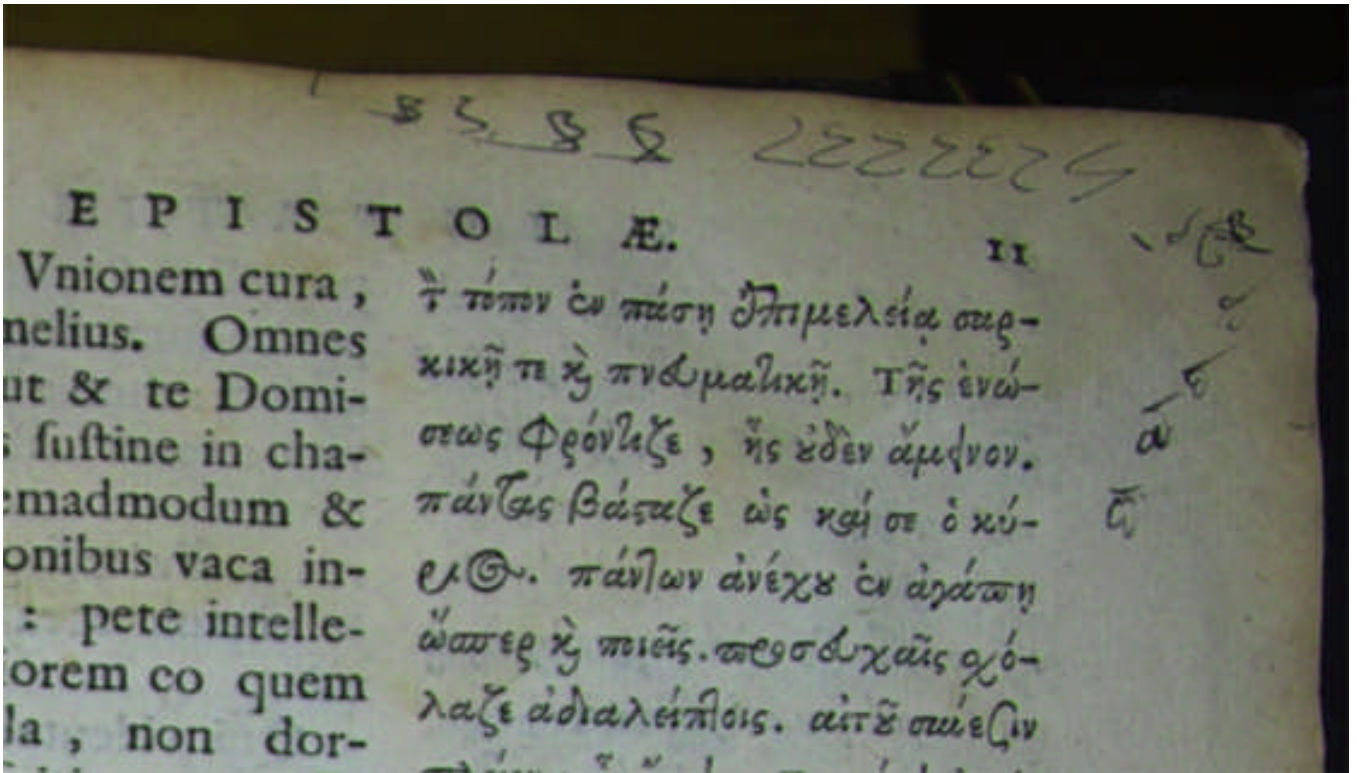 EPISTOLÆ. 11
Vnionem cura,
melius. Omnes
ut & te Domi-
ſuſtine in cha-
emadmodum &
onibus vaca in-
: pete intelle-
orem eo quem
la, non dor-
τ̀ τόπον ἐν πάσῃ ἐπιμελείᾳ σαρ-
κικῇ τε ϗ̀ πνευματικῇ. Τῆς ἑνώ-
σεως φρόντιζε, ἧς ȣ̓δὲν ἄμεινον.
πάντας βάσταζε ὡς καί σε ὁ κύ-
ριος. πάντων ἀνέχȣ ἐν ἀγάπῃ
ὥσπερ ϗ̀ ποιεῖς. προσευχαῖς σχό-
λαζε ἀδιαλείπτοις. αἰτȣ͂ σύνεσιν